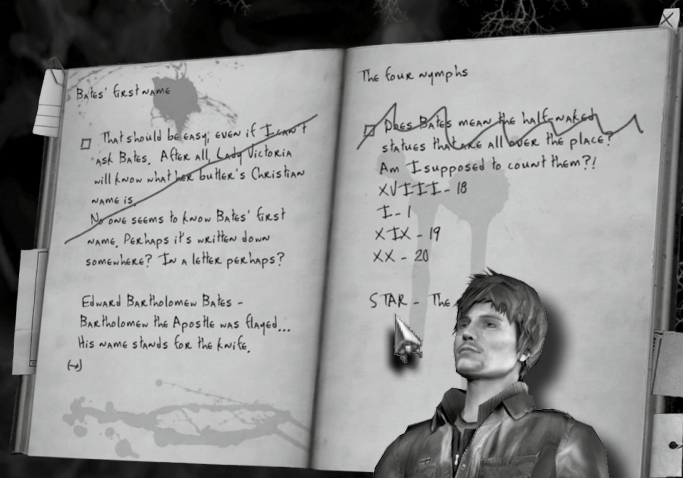 Bates' first name
That should be easy, even if I can't
ask Bates. After all, Lady Victoria
will know what her butler's Christian
name is.
No one seems to know Bates' first
name. Perhaps it's written down
somewhere? In a letter perhaps?
Edward Bartholomew Bates –
Bartholomew the Apostle was flayed...
His name stands for the knife.
The four nymphs
Does Bates mean the half-naked
statues that are all over the place?
Am I supposed to count them?!
XVIII – 18
I – 1
XIX – 19
XX – 20
STAR – The
X